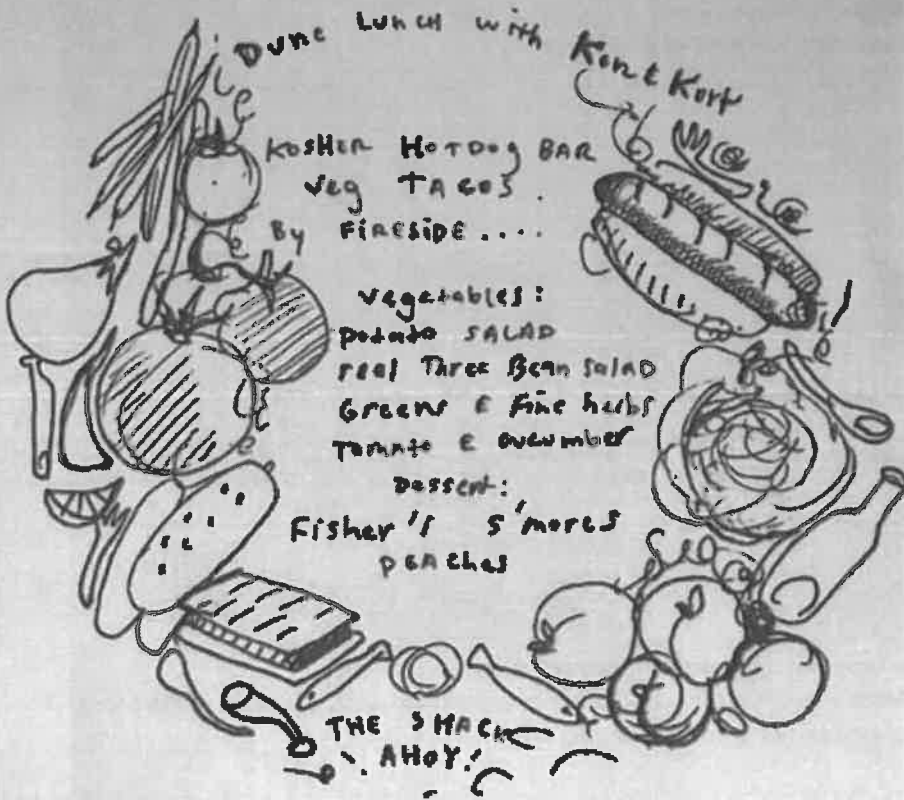 Dune Lunch with Ken & Kurt
KOSHER HOTDOG BAR
Veg TACOS
By FIRESIDE ....
Vegetables:
potato SALAD
real Three Bean Salad
Greens & Fine herbs
Tomato & cucumber
Dessert:
Fisher's S'mores
peaches
THE SHACK
AHOY!